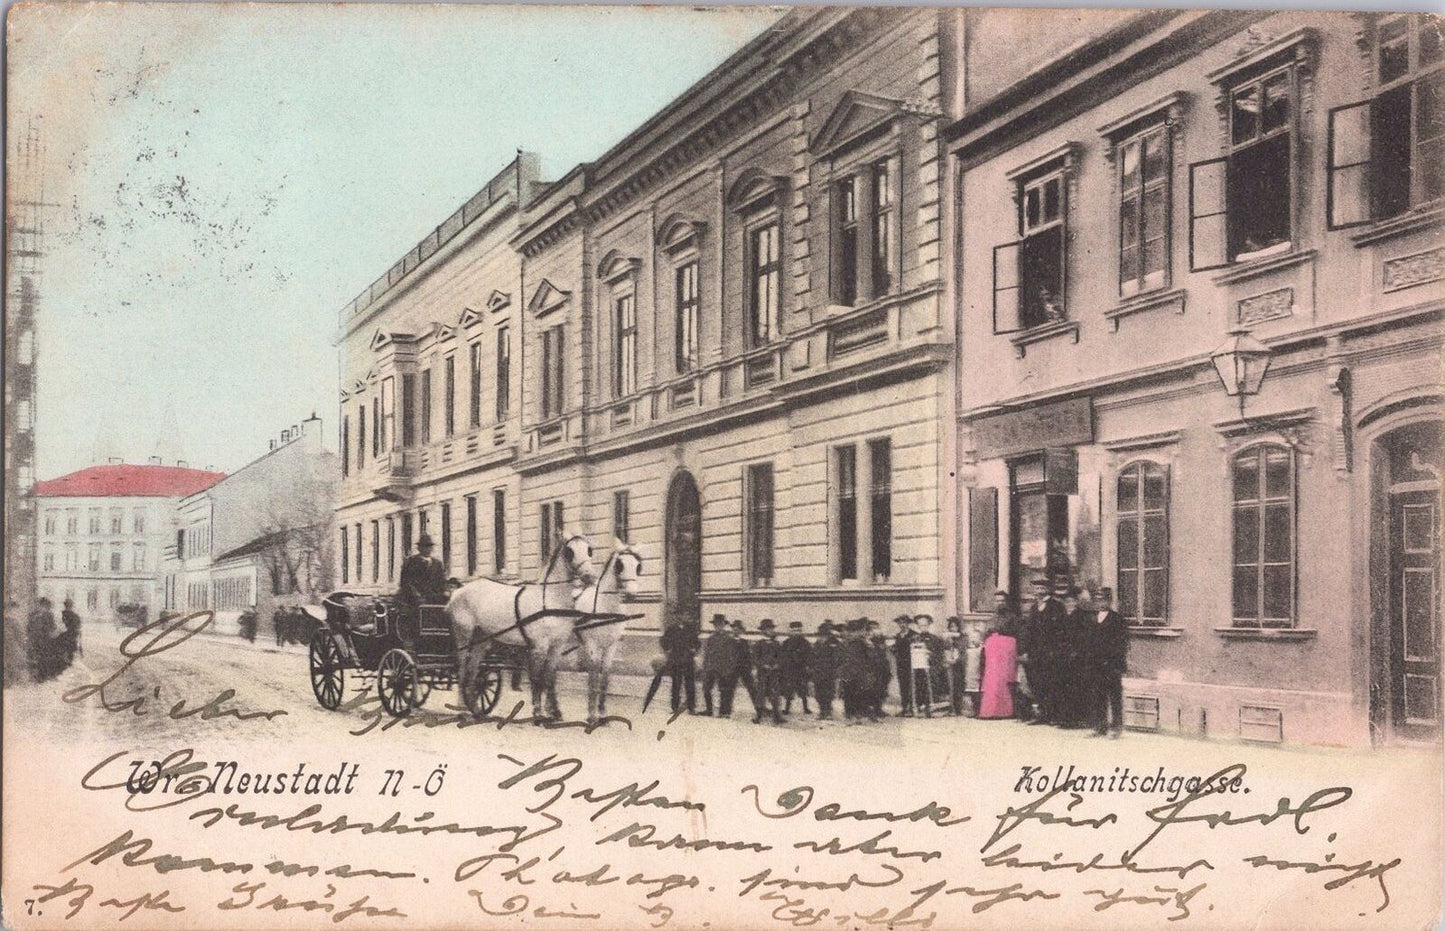 Lieber Bruder!
Wr. Neustadt N-Ö
Kollanitschgasse.
Besten Dank für frdl.
Einladung, kann aber leider nicht
kommen. Photogr. sind sehr gut.
7.
Beste Grüße Dein B. Willi